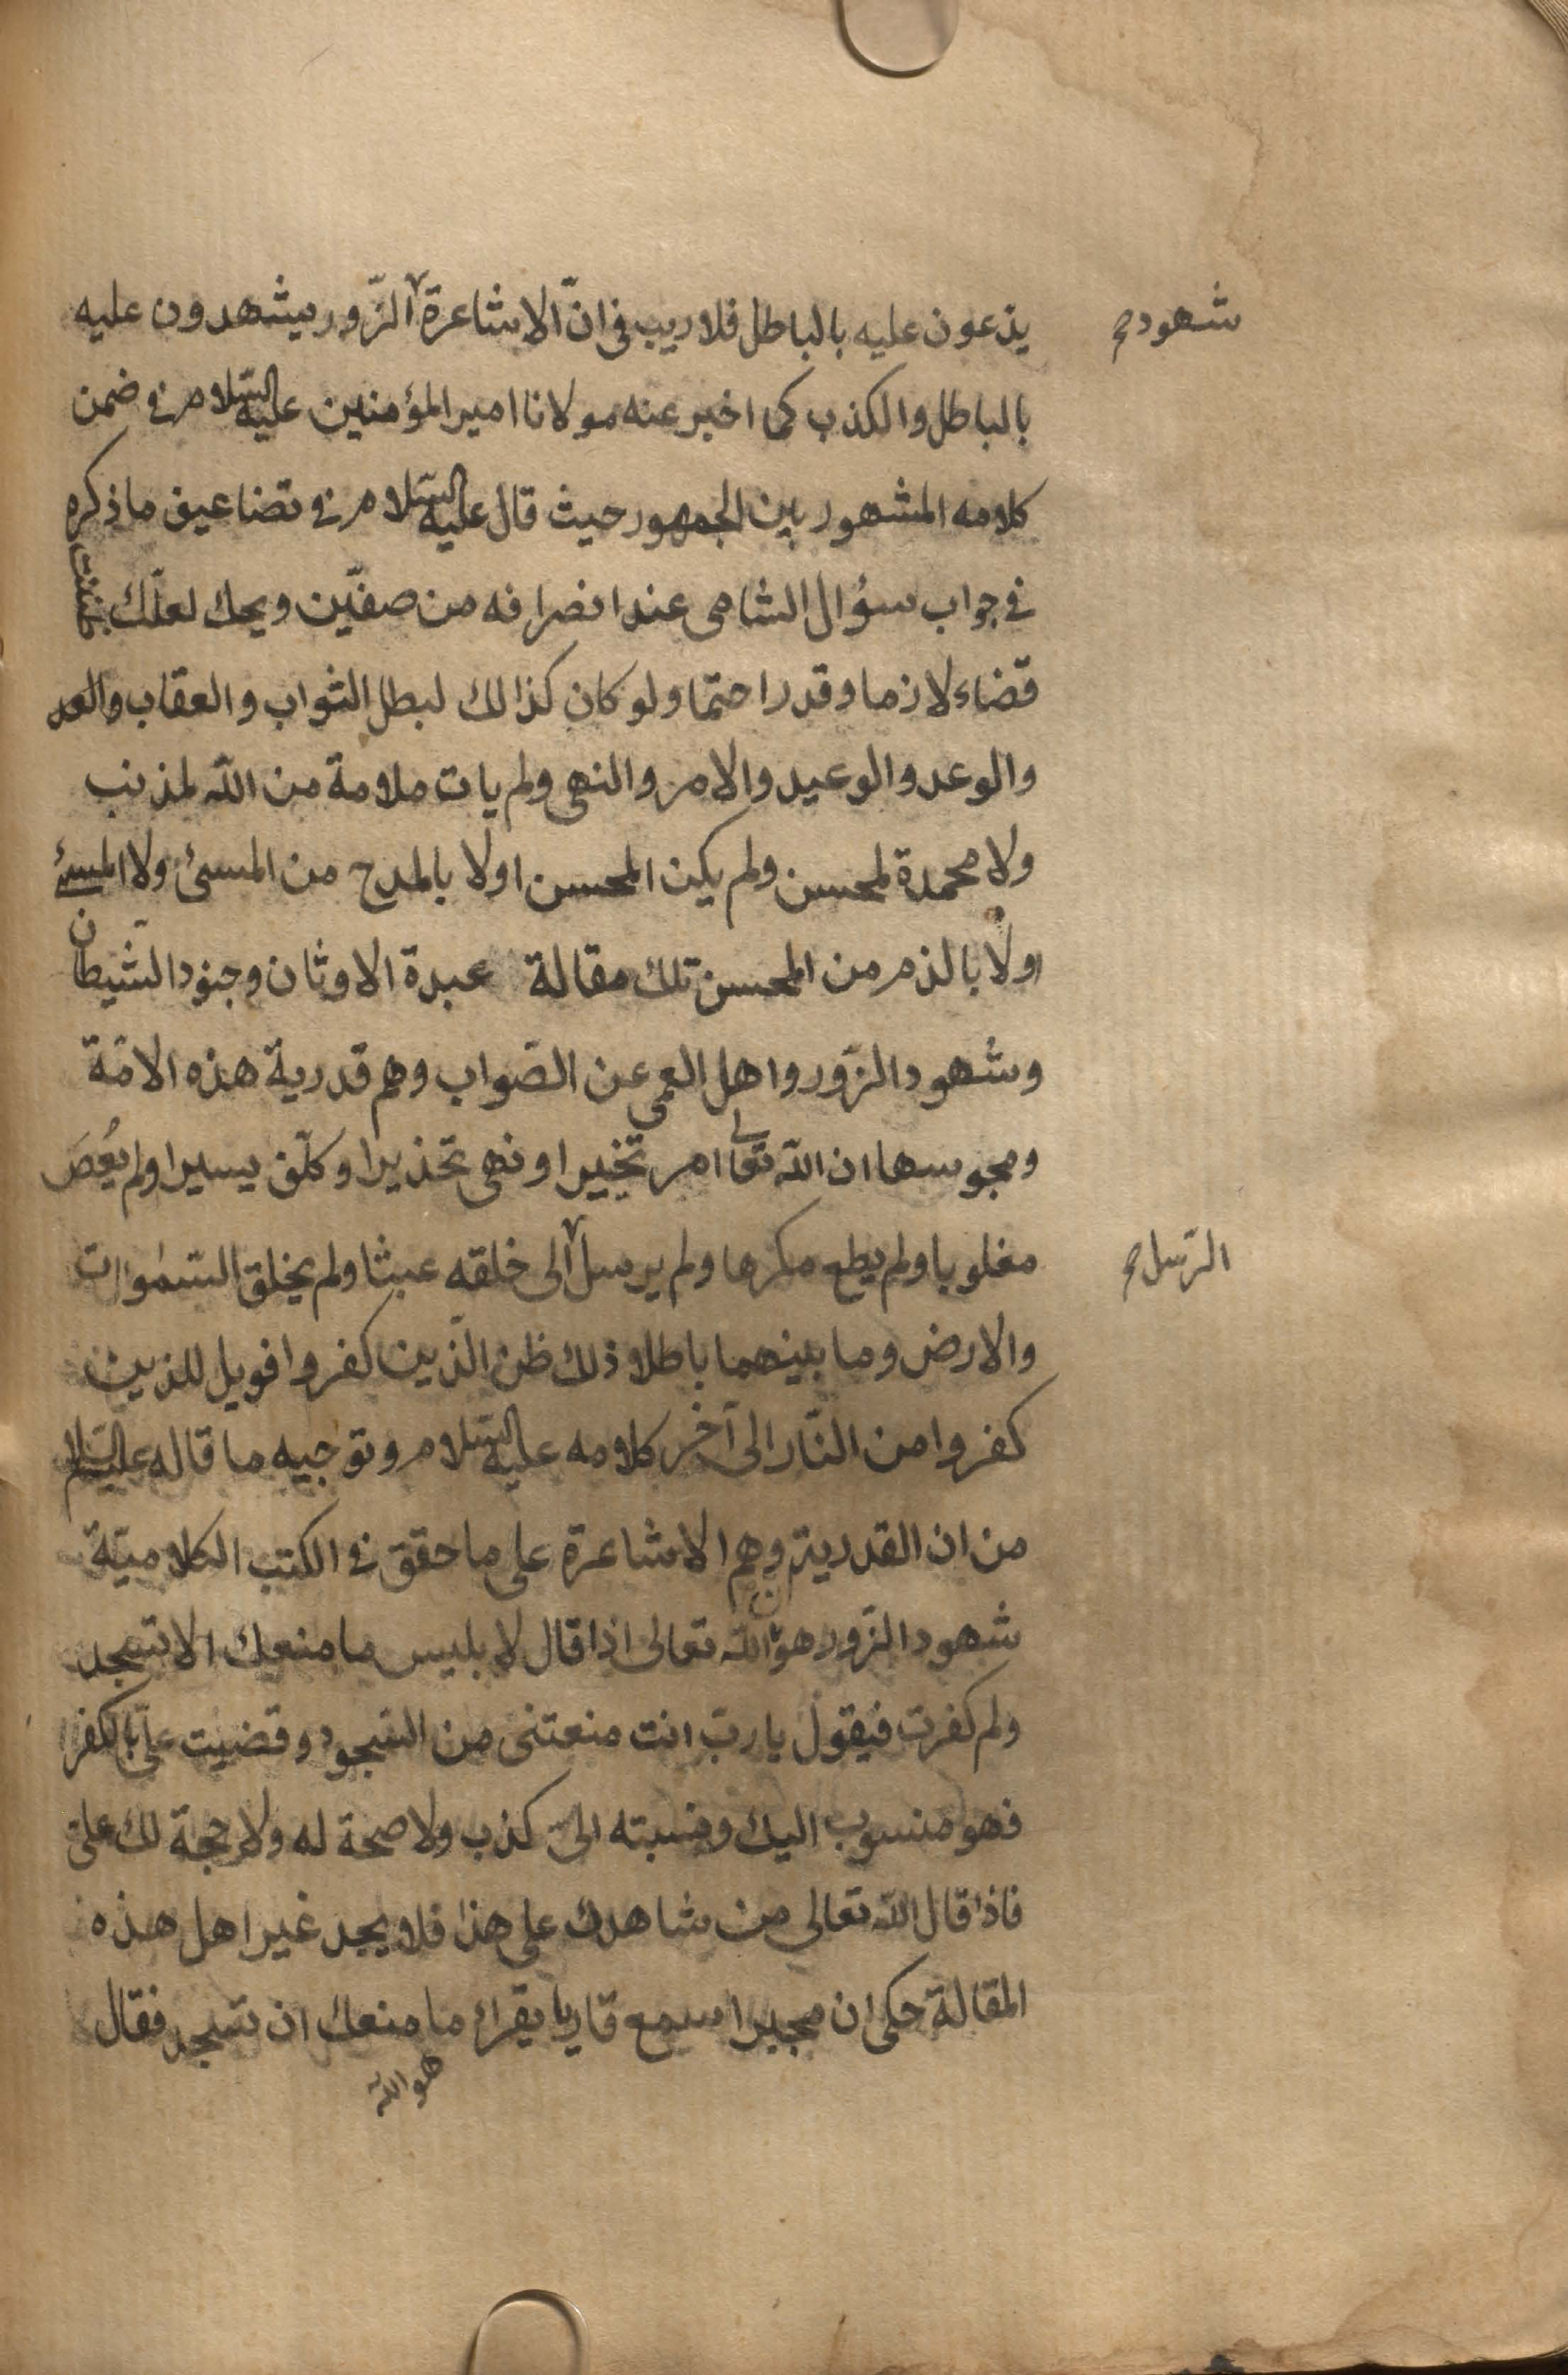 يدعون عليه بالباطل فلا ريب فى انّ الاشاعرة الزّور يشهدون عليه
شهود صح
بالباطل والكذب كما اخبر عنه مولانا امير المؤمنين عليه السّلام فى ضمن
كلامه المشهور بين الجمهور حيث قال عليه السّلام فى تضاعيف ما ذكره
فى جواب سؤال الشامى عند انصرافه من صفّين ويحك لعلّك ظننت
قضاء لازما وقدرا حتما ولو كان كذالك لبطل الثواب والعقاب
والوعد والوعيد والامر والنهى ولم يات ملامة من اللّه لمذنب
ولا محمدة لمحسن ولم يكن المحسن اولا بالمدح من المسئ ولا المسئ
اولا بالذم من المحسن تلك مقالة عبدة الاوثان وجنود الشّيطان
وشهود الزّور واهل العمى عن الصّواب وهم قدرية هذه الامّة
ومجوسها ان اللّه تعالى امر تخييرا ونهى تحذيرا وكلّف يسيرا ولم يُعصَ
مغلوبا ولم يطع مكرها ولم يرسل الى خلقه عبثا ولم يخلق السّموات
الرّسل صح
والارض وما بينهما باطلا ذلك ظن الّذين كفروا فويل للذين
كفروا من النّار الى آخر كلامه عليه السّلام وتوجيه ما قاله عليه السّلام
من ان القدرية وهم الاشاعرة على ما حقق فى الكتب الكلاميّة
شهود الزّور هو ان اللّه تعالى اذا قال لابليس ما منعك الا تسجد
ولم كفرت فيقول يا ربّ انت منعتنى من السّجود وقضيت علىّ بالكفر
فهو منسوب اليك ونسبته الىّ كذب ولا صحة له ولا حجة لك علىّ
فاذا قال اللّه تعالى من شاهدك على هذا فلا يجد غير اهل هذه
المقالة حكى ان مجبرا سمع قاريا يقراء ما منعك ان تسجد فقال
هو اللّه